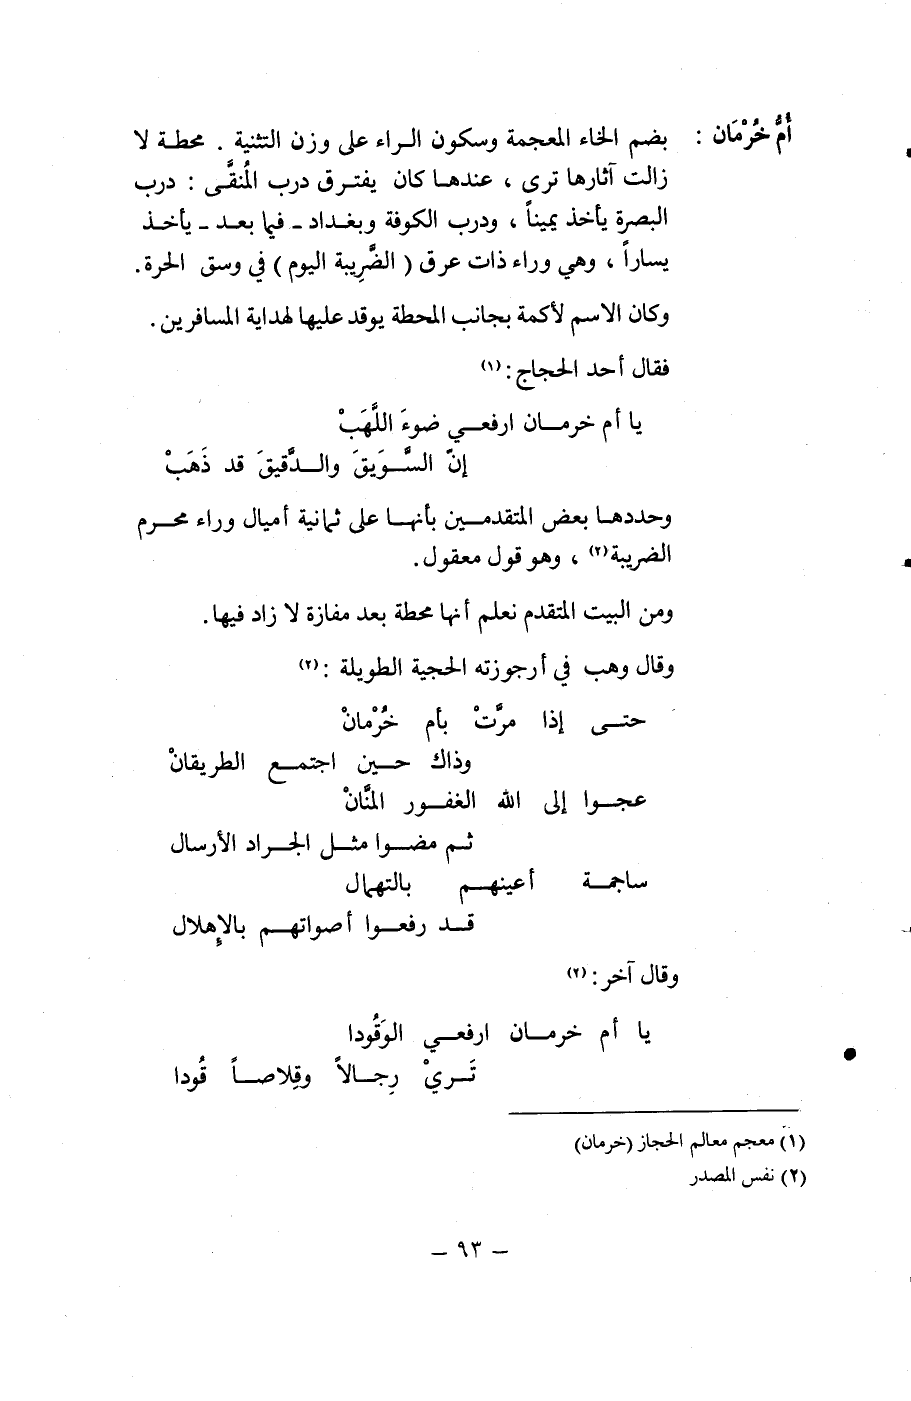 أُمُّ خُرْمَان : بضم الخاء المعجمة وسكون الراء على وزن التثنية . محطة لا
زالت آثارها ترى ، عندها كان يفترق درب المُنقَّى : درب
البصرة يأخذ يميناً ، ودرب الكوفة وبغداد ـ فيما بعد ـ يأخذ
يساراً ، وهي وراء ذات عرق ( الضَّرِيبة اليوم ) في وسق الحرة .
وكان الاسم لأكمة بجانب المحطة يوقد عليها لهداية المسافرين .
فقال أحد الحجاج : (١)
يا أم خرمان ارفعي ضوءَ اللَّهَبْ
إنّ السَّوَيقَ والدَّقيقَ قد ذَهَبْ
وحددها بعض المتقدمين بأنها على ثمانية أميال وراء محرم
الضريبة (٢) ، وهو قول معقول .
ومن البيت المتقدم نعلم أنها محطة بعد مفازة لا زاد فيها .
وقال وهب في أرجوزته الحجية الطويلة : (٢)
حتى إذا مرَّتْ بأم خُرْمانْ
وذاك حين اجتمع الطريقانْ
عجوا إلى الله الغفور المنَّانْ
ثم مضوا مثل الجراد الأرسال
ساجمة أعينهم بالتهمال
قد رفعوا أصواتهم بالإهلال
وقال آخر : (٢)
يا أم خرمان ارفعي الوَقُودا
تَريْ رِجالاً وقِلاصاً قُودا
(١) معجم معالم الحجاز (خرمان)
(٢) نفس المصدر
– ٩٣ –